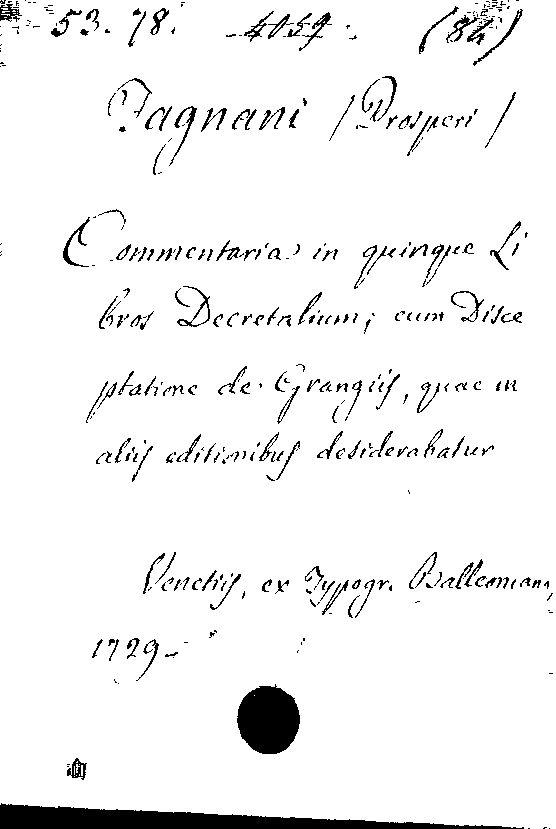 53. 78. 4059. (84)
Fagnani /Prosperi/
Commentaria in quinque Li
bros Decretalium; cum Disce
ptatione de Grangiis, quae in
aliis editionibus desiderabatur
Venetiis, ex Typogr. Balleoniana,
1729.